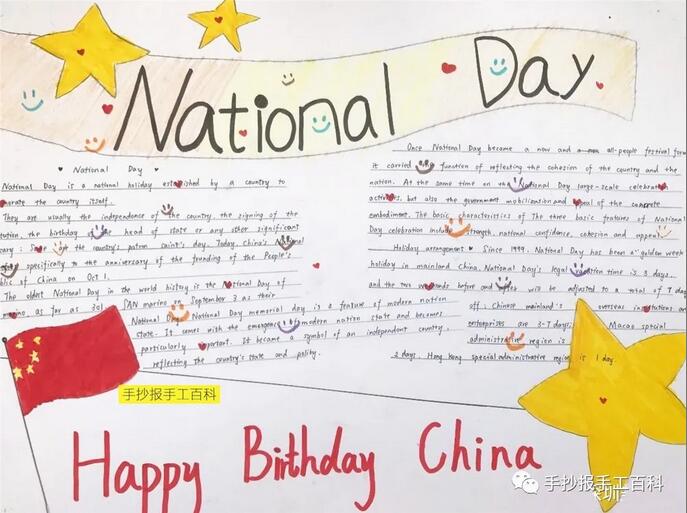 National Day
National Day
National Day is a national holiday established by a country to
the country itself.
They are usually the independence of the country, the signing of the
the birthday head of state or any other significant
the country's patron saint's day. Today, China's National
specifically to the anniversary of the founding of the People's
of China on Oct 1.
The oldest National Day in the world history is the National Day of
as far as 301 AN marino on September 3 as their
National Day National Day memorial day is a feature of modern nation
state. It comes with the modern nation state and becomes
particularly important. It became a symbol of an independent country,
reflecting the country's state and polity.
Once National Day became a now and all-people festival form
it carried the function of reflecting the cohesion of the country and the
nation. At the same time on the National Day large-scale celebration
but also the government mobilization and appeal of the concrete
embodiment. The basic characteristics of The three basic features of National
Day celebration strength, national confidence, cohesion and appeal
Holiday arrangement Since 1999, National Day has been a "golden week
holiday in mainland China. National Day's legal vacation time is 3 days,
and the two weekends before and after will be adjusted to a total of 7 days
off. Chinese mainland's overseas institutions and
enterprises are 3-7 days; Macao special
administrative region is
2 days, Hong Kong special administrative region is 1 day.
手抄报手工百科
Happy Birthday China
手抄报手工百科